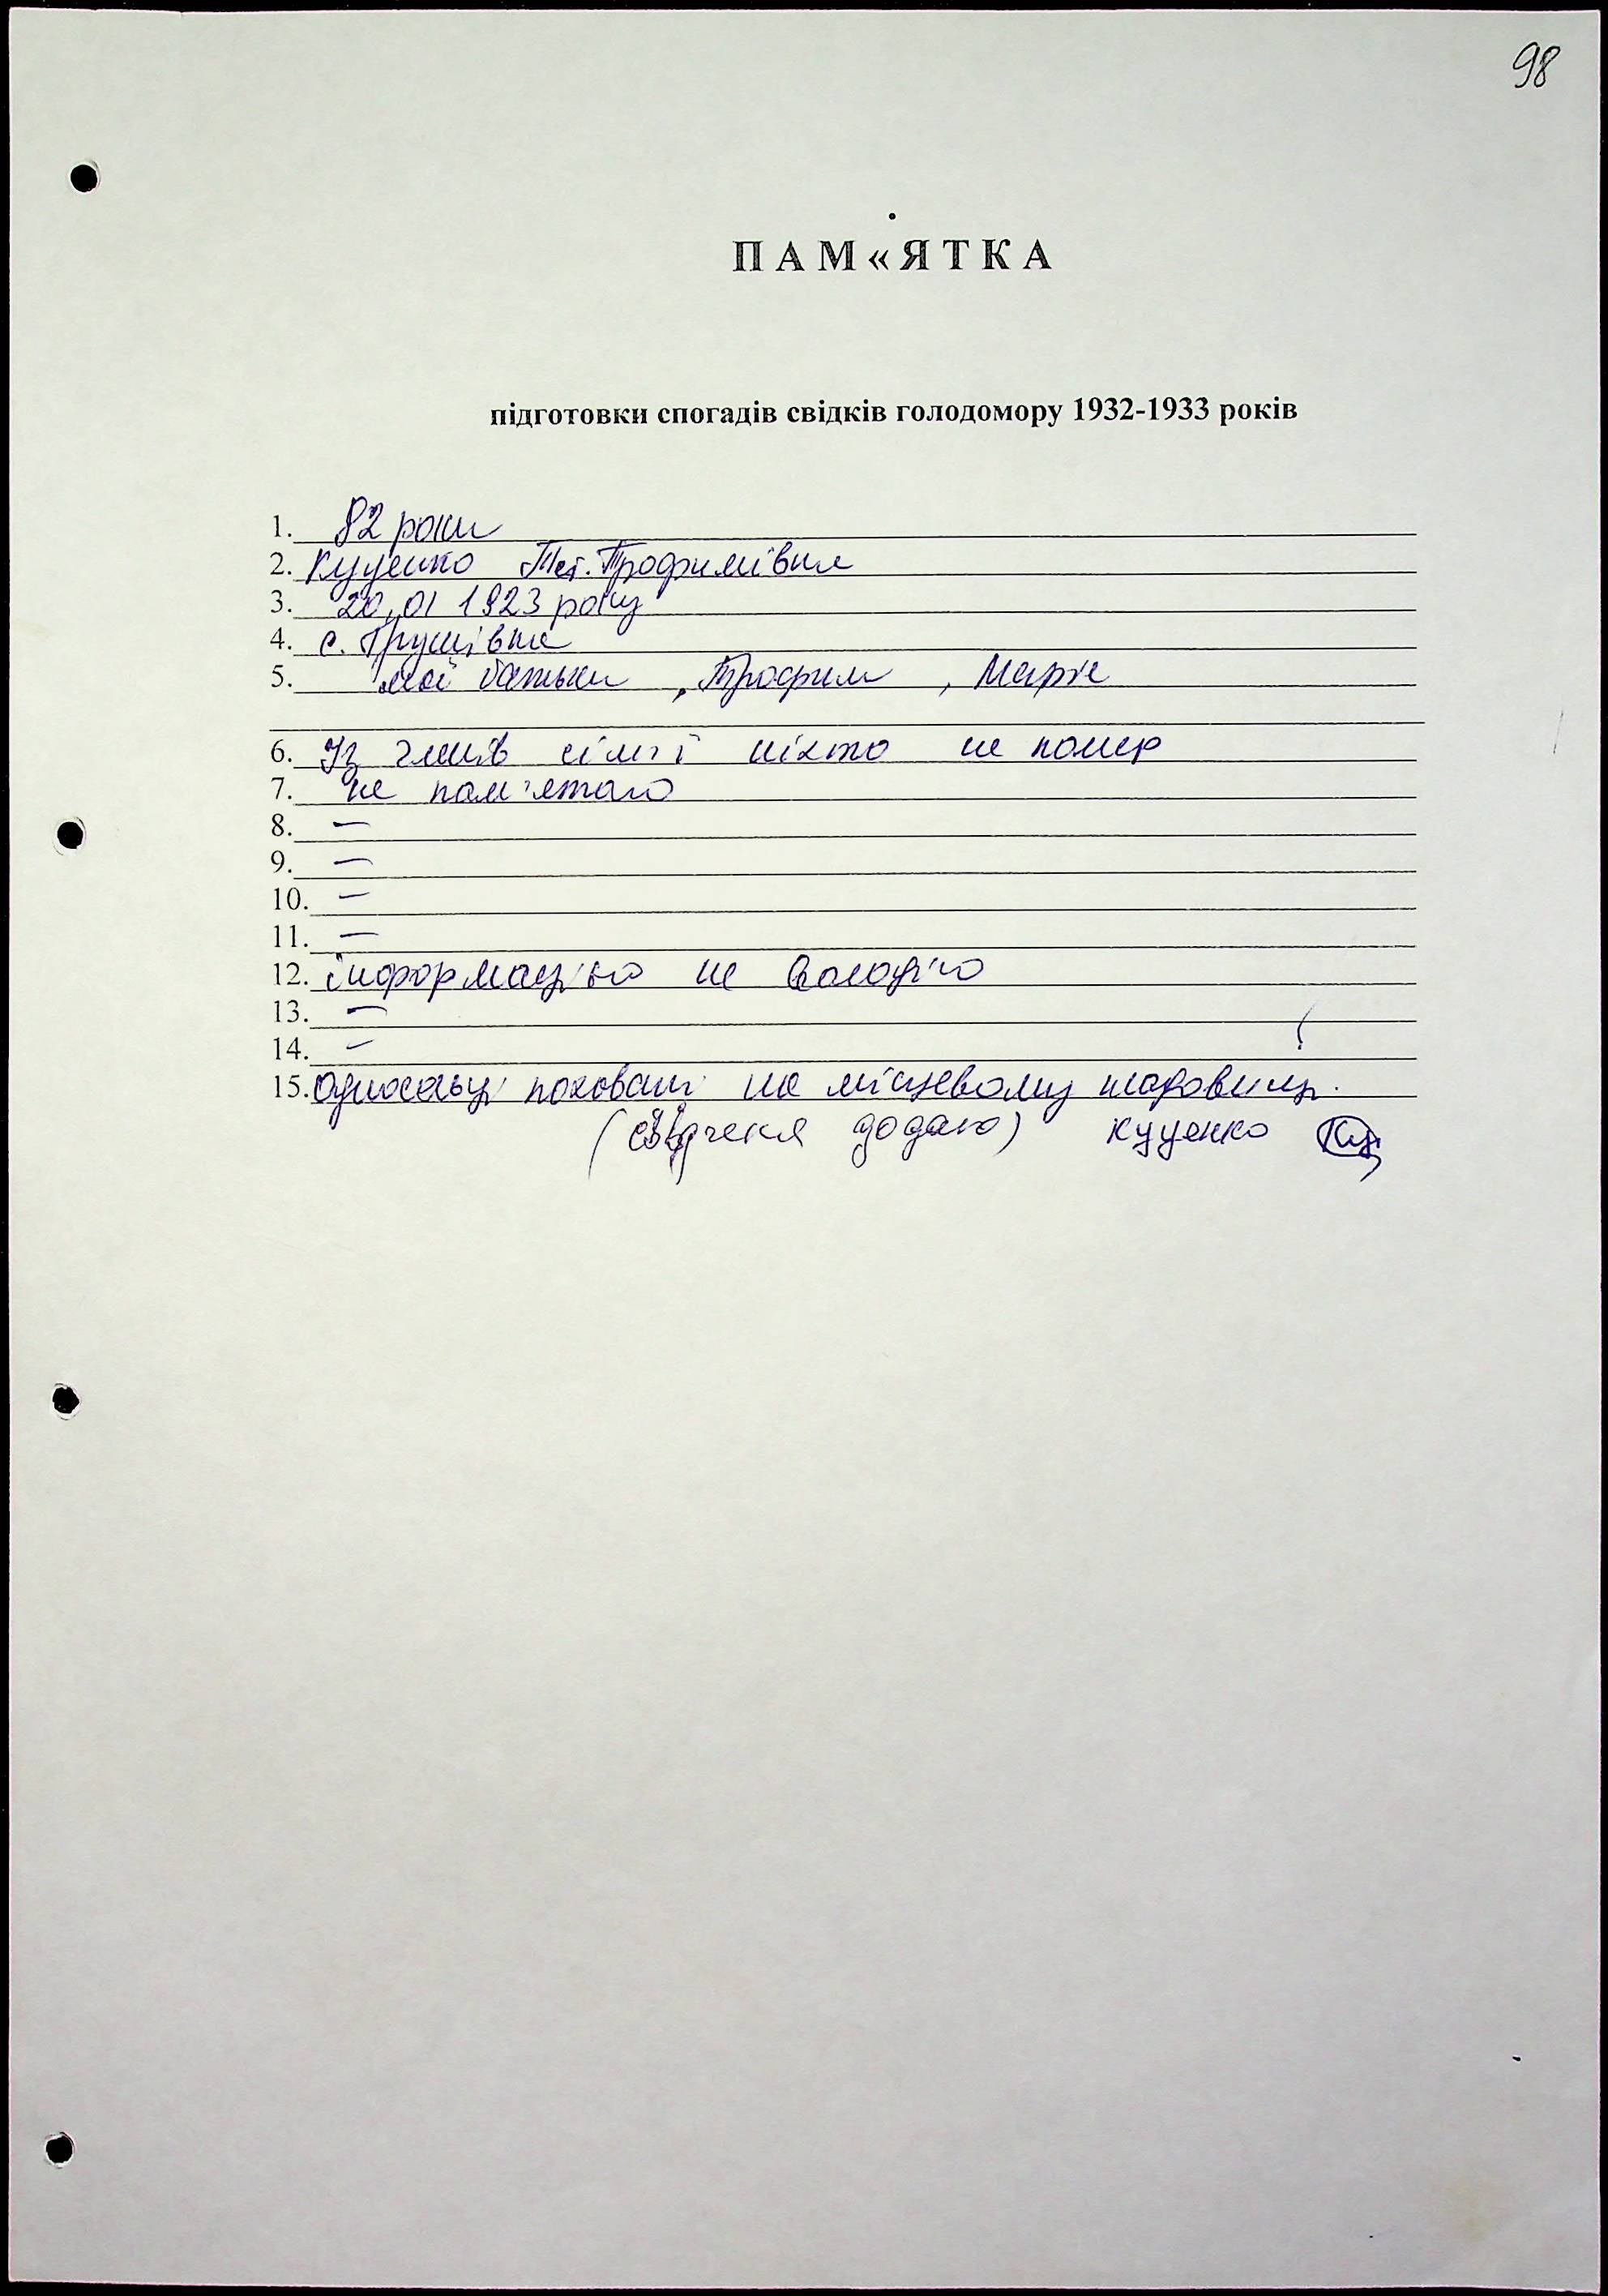 98
ПАМ«ЯТКА
підготовки спогадів свідків голодомору 1932-1933 років
1. 82 роки
2. Куценко Тет. Трофимівна
3. 20.01 1923 року
4. с. Грушівка
5. мої батьки, Трофим, Марія
6. Із членів сім'ї ніхто не помер
7. не пам'ятаю
8. –
9. –
10. –
11. –
12. інформацією не володію
13. –
14. –
15. односельці поховані на місцевому
(свідчення додаю) Куценко